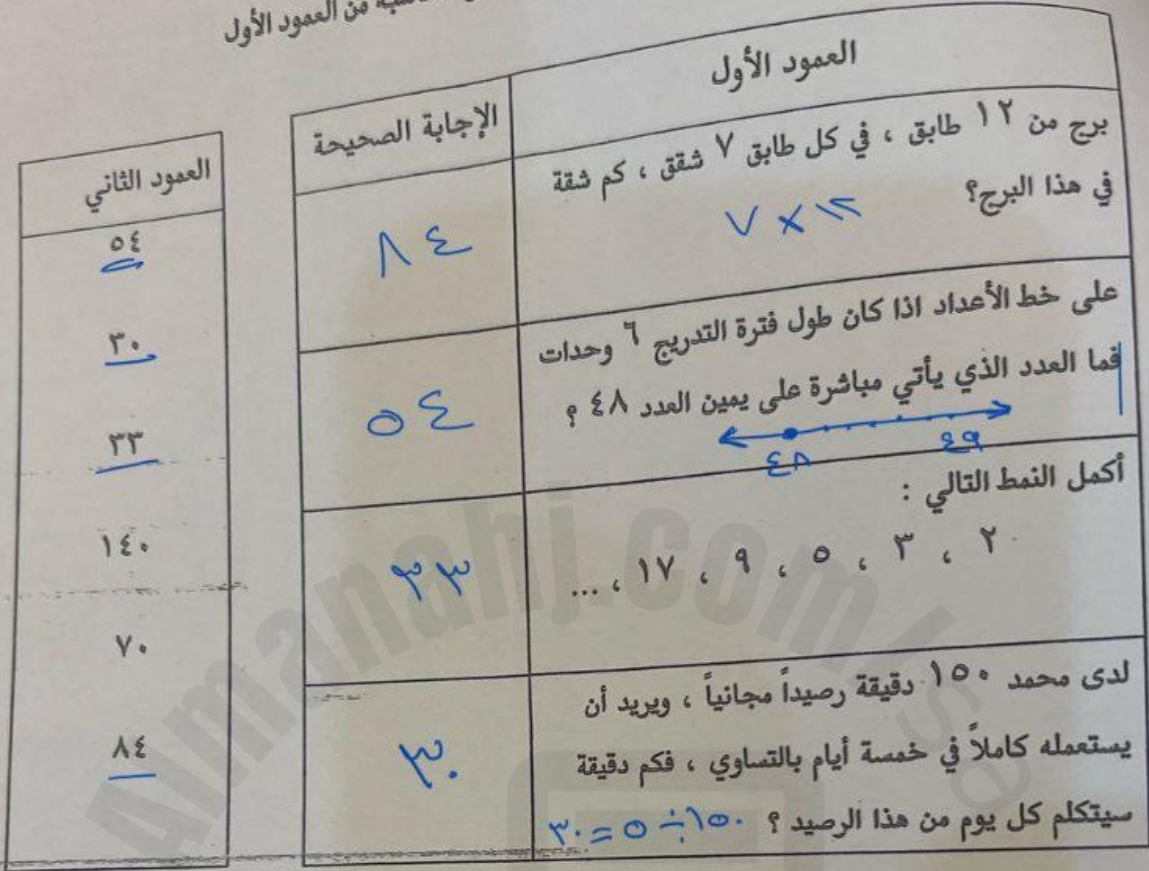 من العمود الأول
العمود الأول
الإجابة الصحيحة
العمود الثاني
برج من ١٢ طابق ، في كل طابق ٧ شقق ، كم شقة
في هذا البرج؟ ٧ × ١٢
٨٤
على خط الأعداد اذا كان طول فترة التدريج ٦ وحدات
فما العدد الذي يأتي مباشرة على يمين العدد ٤٨ ؟
٤٨ ٤٩
٥٤
أكمل النمط التالي :
٢ ، ٣ ، ٥ ، ٩ ، ١٧ ، ...
٣٣
لدى محمد ١٥٠ دقيقة رصيداً مجانياً ، ويريد أن
يستعمله كاملاً في خمسة أيام بالتساوي ، فكم دقيقة
سيتكلم كل يوم من هذا الرصيد ؟ ١٥٠ ÷ ٥ = ٣٠
٣٠
٥٤
٣٠
٣٣
١٤٠
٧٠
٨٤
Almanahj.com/sa